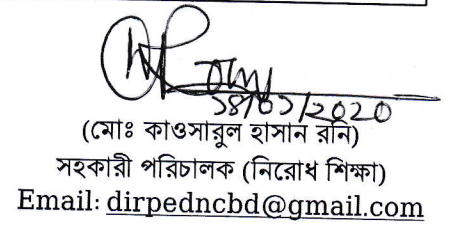 ১৪/০১/২০২০
(মোঃ কাওসারুল হাসান রনি)
সহকারী পরিচালক (নিরোধ শিক্ষা)
Email: dirpedncbd@gmail.com